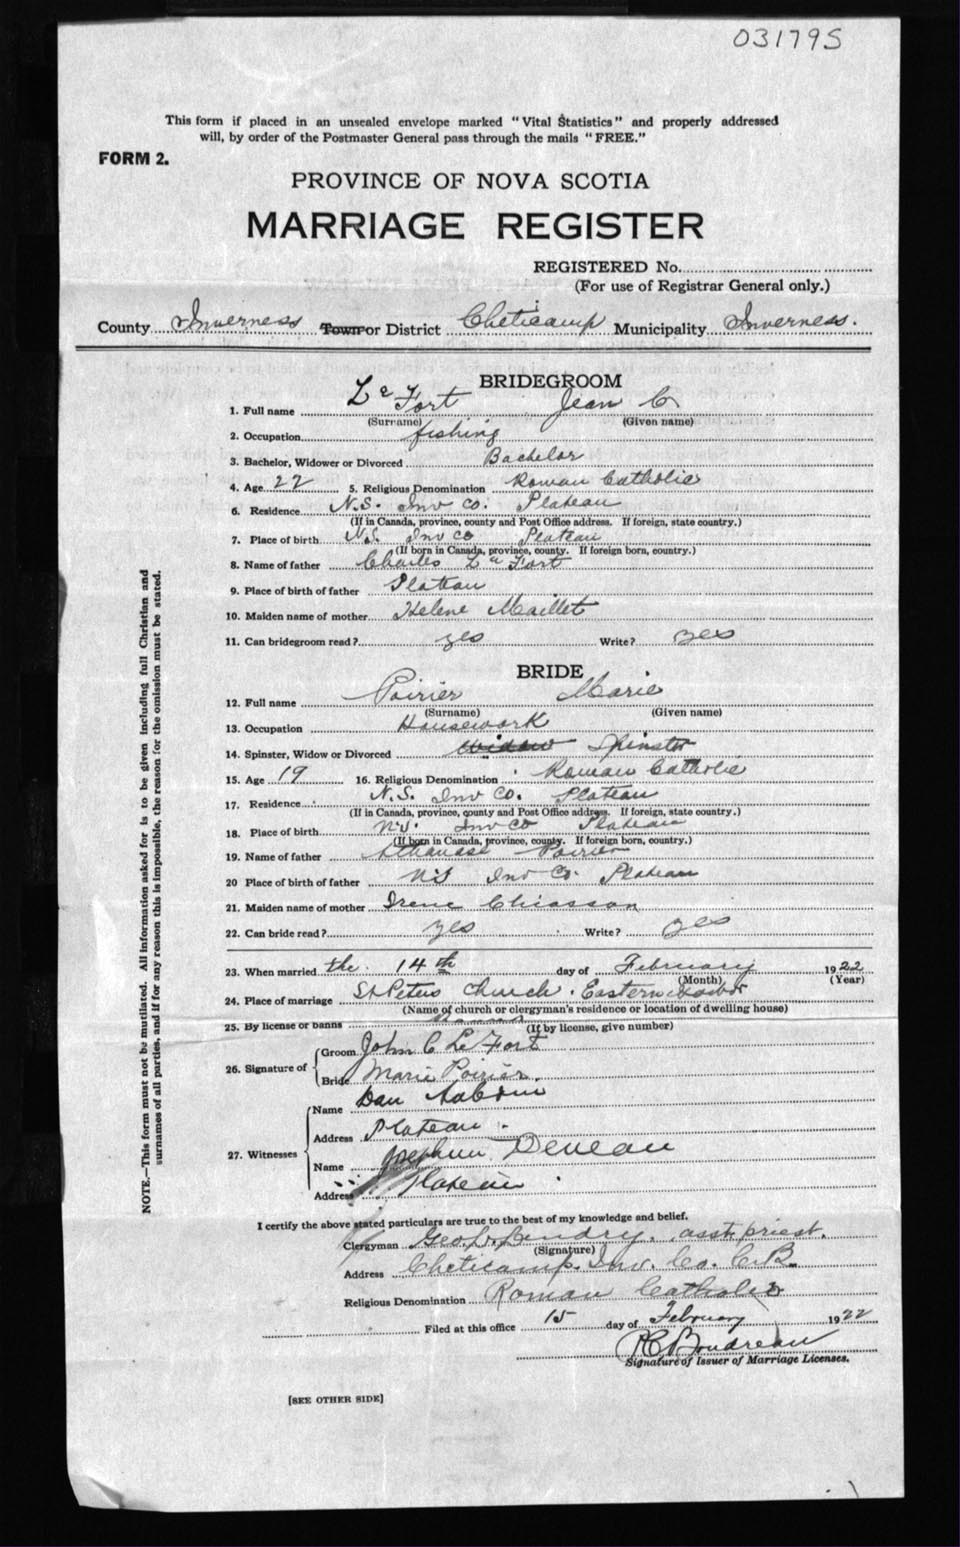 031795
This form if placed in an unsealed envelope marked "Vital Statistics" and properly addressed
will, by order of the Postmaster General pass through the mails "FREE."
FORM 2.
PROVINCE OF NOVA SCOTIA
MARRIAGE REGISTER
REGISTERED No.
(For use of Registrar General only.)
County Inverness Town or District Cheticamp Municipality Inverness.
BRIDEGROOM
1. Full name Le Fort Jean C
(Surname) (Given name)
2. Occupation fishing
3. Bachelor, Widower or Divorced Bachelor
4. Age 22 5. Religious Denomination Roman Catholic
6. Residence N.S. Inv Co. Plateau
(If in Canada, province, county and Post Office address. If foreign, state country.)
7. Place of birth N.S. Inv Co Plateau
(If born in Canada, province, county. If foreign born, country.)
8. Name of father Charles Le Fort
9. Place of birth of father Plateau
10. Maiden name of mother Helene Maillet
11. Can bridegroom read? yes Write? yes
BRIDE
12. Full name Poirier Marie
(Surname) (Given name)
13. Occupation Housework
14. Spinster, Widow or Divorced Widow Spinster
15. Age 19 16. Religious Denomination Roman Catholic
17. Residence N.S. Inv Co. Plateau
(If in Canada, province, county and Post Office address. If foreign, state country.)
18. Place of birth N.S. Inv Co Plateau
(If born in Canada, province, county. If foreign born, country.)
19. Name of father Athanase Poirier
20 Place of birth of father N.S Inv Co. Plateau
21. Maiden name of mother Irene Chiasson
22. Can bride read? yes Write? yes
23. When married the 14th day of February 1922
(Month) (Year)
24. Place of marriage St Peters Church. Eastern Harbor
(Name of church or clergyman's residence or location of dwelling house)
25. By license or banns Banns
(If by license, give number)
26. Signature of
Groom John C Le Fort
Bride Marie Poirier.
27. Witnesses
Name Dan
Address Plateau
Name Josephine Deveau
Address Plateau
I certify the above stated particulars are true to the best of my knowledge and belief.
Clergyman Geo. L. Landry, asst. priest.
(Signature)
Address Cheticamp. Inv. Co. C.B.
Religious Denomination Roman Catholic
Filed at this office 15 day of February 1922
Boudreau
Signature of Issuer of Marriage Licenses.
[SEE OTHER SIDE]
NOTE.—This form must not be mutilated. All information asked for is to be given including full Christian and
surnames of all parties, and if for any reason this is impossible, the reason for the omission must be stated.